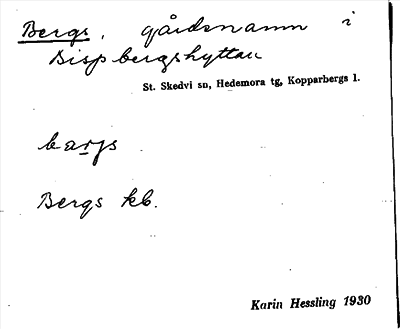 Bergs, gårdsnamn i
Bispbergshyttan
St. Skedvi sn, Hedemora tg, Kopparbergs l.
barjs
Bergs kb.
Karin Hessling 1930